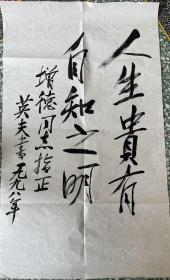 人生貴有
自知之明
增德同志指正
英夫書一九九八年